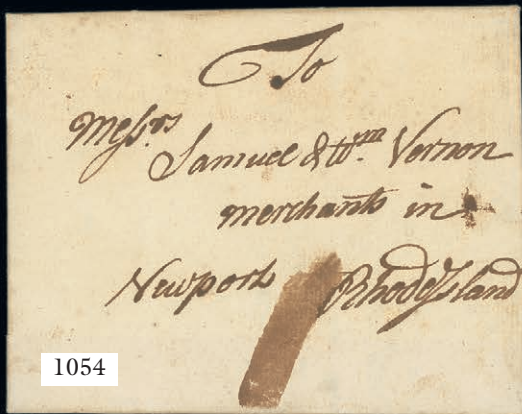 To
Messrs
Samuel & Wm. Vernon
merchants in
Newport Rhode Island
1054